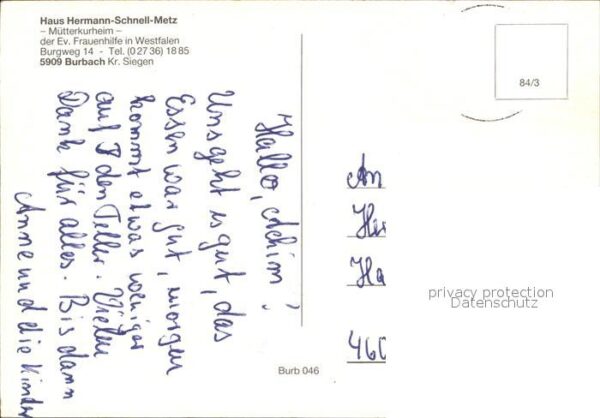 Haus Hermann-Schnell-Metz
– Mütterkurheim –
der Ev. Frauenhilfe in Westfalen
Burgweg 14 - Tel. (0 27 36) 18 85
5909 Burbach Kr. Siegen
84/3
Hallo, Achim!
Uns geht es gut, das
Essen war gut, morgen
kommt etwas weniger
auf den Teller. Vielen
Dank für alles. Bis dann
Anne und die Kinder
An
He
Ha
460
privacy protection
Datenschutz
Burb 046